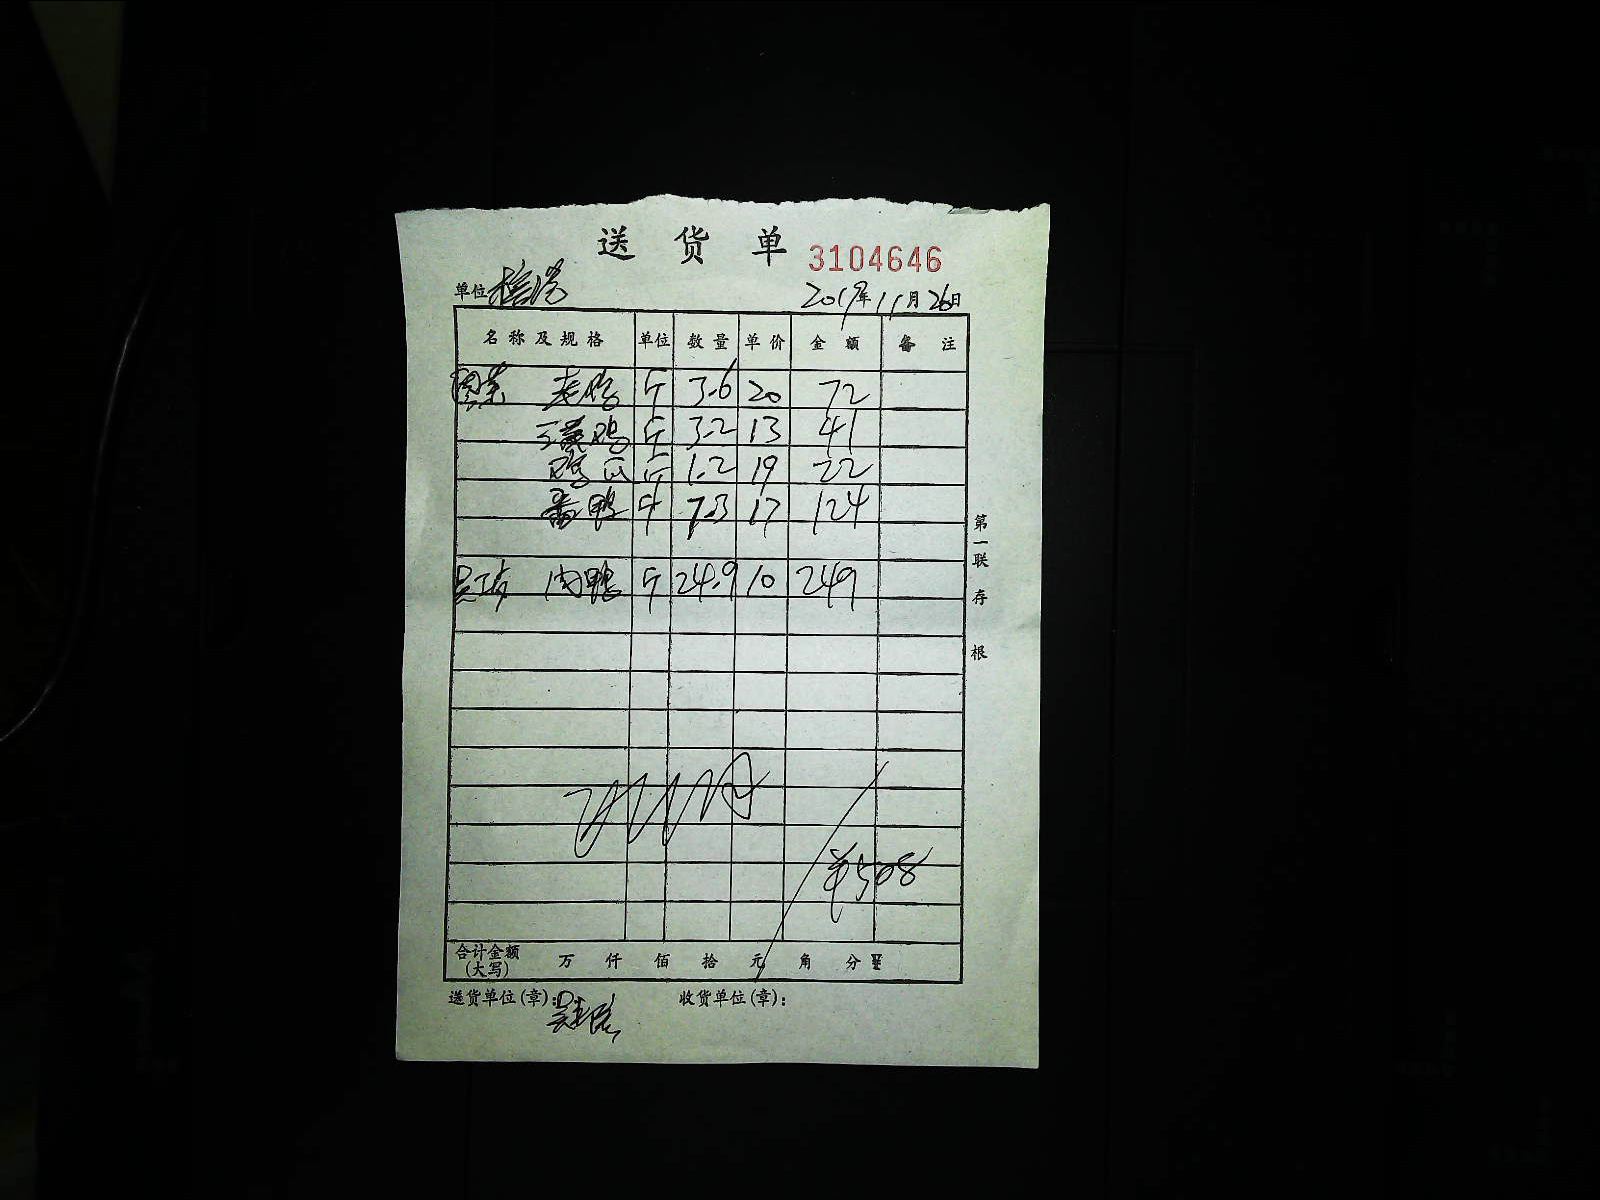 送货单 3104646
单位 2019年11月26日
名称及规格 单位 数量 单价 金额 备注
老鸡 斤 3.6 20 72
三黄鸡 斤 3.2 13 41
斤 1.2 19 22
番鸭 斤 7.3 17 124
员工 肉鸭 斤 24.9 10 249
¥508
合计金额(大写) 万 仟 佰 拾 元 角 分
送货单位(章): 收货单位(章):
第一联 存根